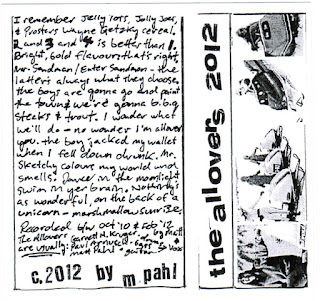 I remember Jelly Tots, Jolly Joes,
& Prosters Wayne Gretzky cereal.
2 and 3 and 4 is better than 1.
Bright, bold flavours that's right,
Mr. Sandman / Enter Sandman - the
latter's always what they choose.
the boys are gonna go and paint
the town & we're gonna b.b.q.
steaks & trout. I wonder what
we'll do - no wonder I'm allover
you. the boy jacked my wallet
when I fell down drunk. Mr.
Sketchy colours my world and
smells. Dance in the moonlight
swim in yer brain. Nothing's
as wonderful, on the back of a
unicorn - marshmallow sunrise.
Recorded b/w Oct '10 & Feb '12
The Allovers by Matt
are usually: Garnett Kruger
Paul
Matt Pahl guitar
c. 2012 by m pahl
the allovers 2012